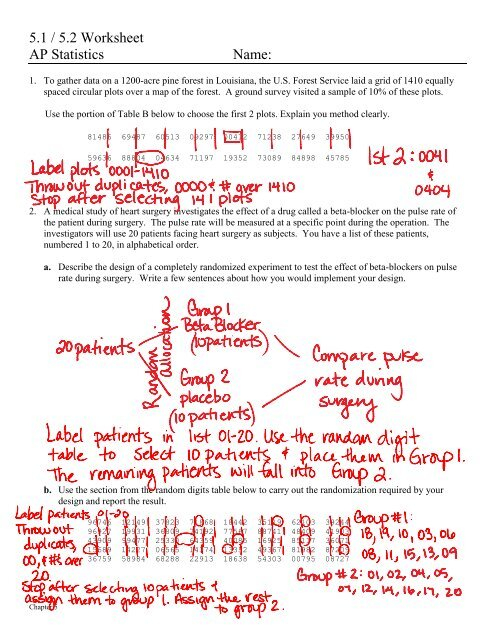 5.1 / 5.2 Worksheet
AP Statistics Name:
1. To gather data on a 1200-acre pine forest in Louisiana, the U.S. Forest Service laid a grid of 1410 equally
spaced circular plots over a map of the forest. A ground survey visited a sample of 10% of these plots.
Use the portion of Table B below to choose the first 2 plots. Explain you method clearly.
81486 69487 60513 09297 00412 71238 27649 39950
59636 88804 04634 71197 19352 73089 84898 45785
1st 2: 0041
&
0404
Label plots 0001-1410
Throw out duplicates, 0000 & # over 1410
Stop after selecting 141 plots
2. A medical study of heart surgery investigates the effect of a drug called a beta-blocker on the pulse rate of
the patient during surgery. The pulse rate will be measured at a specific point during the operation. The
investigators will use 20 patients facing heart surgery as subjects. You have a list of these patients,
numbered 1 to 20, in alphabetical order.
a. Describe the design of a completely randomized experiment to test the effect of beta-blockers on pulse
rate during surgery. Write a few sentences about how you would implement your design.
20 patients
Random allocation
Group 1
Beta Blocker
(10 patients)
Group 2
placebo
(10 patients)
Compare pulse
rate during
surgery
Label patients in list 01-20. Use the random digit
table to select 10 patients & place them in Group 1.
The remaining patients will fall into Group 2.
b. Use the section from the random digits table below to carry out the randomization required by your
design and report the result.
Label patients 01-20
Throw out
duplicates,
00, & #s over
20.
Stop after selecting 10 patients &
assign them to group 1. Assign the rest
to group 2.
96746 12149 37823 18442
36909
99477 25330
14227 06565
36759 58984 68288 22913 18638 54303 00795 08727
Group #1:
18, 19, 10, 03, 06
08, 11, 15, 13, 09
Group #2: 01, 02, 04, 05,
07, 12, 14, 16, 17, 20
Chapter 5